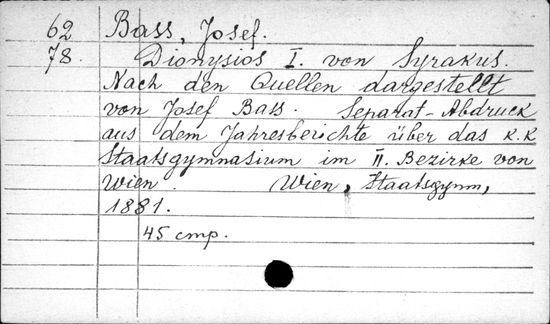 62 Bass, Josef.
78. Dionysios I. von Syrakus.
Nach den Quellen dargestellt
von Josef Bass. Separat-Abdruck
aus dem Jahresberichte über das K.K
Staatsgymnasium im II. Bezirke von
Wien. Wien, Staatsgymn,
1881.
45 cmp.